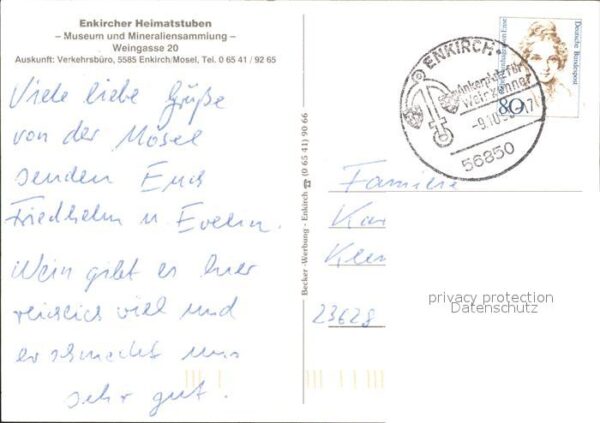 Enkircher Heimatstuben
– Museum und Mineraliensammlung –
Weingasse 20
Auskunft: Verkehrsbüro, 5585 Enkirch/Mosel, Tel. 0 65 41 / 92 65
Viele liebe Grüße
von der Mosel
senden Euch
Friedhelm u. Evelin.
Wein gibt es hier
reichlich viel und
er schmeckt uns
sehr gut.
Becker -Werbung - Enkirch ☎ (0 65 41) 90 66
ENKIRCH
Ankerplatz für
Weinkenner
-9.10.
56850
80
Deutsche Bundespost
Familie
Kar
Klem
23628
privacy protection
Datenschutz